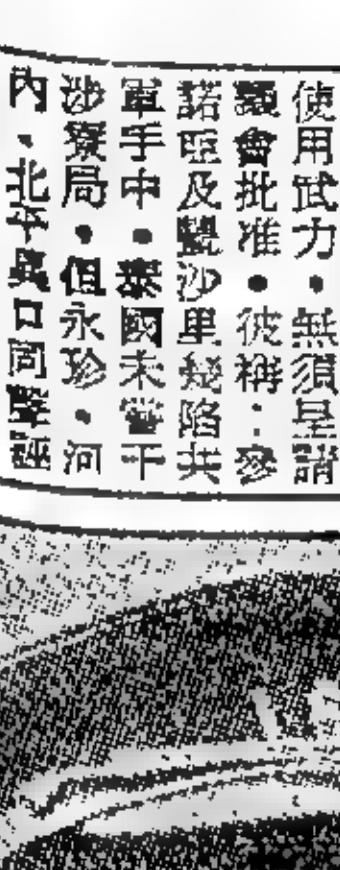 使用武力・無須呈請
議會批准・彼稱：寮
諾亞及豐沙里幾陷共
軍手中・泰國未嘗干
涉寮局・但永珍・河
內・北平異口同聲誣